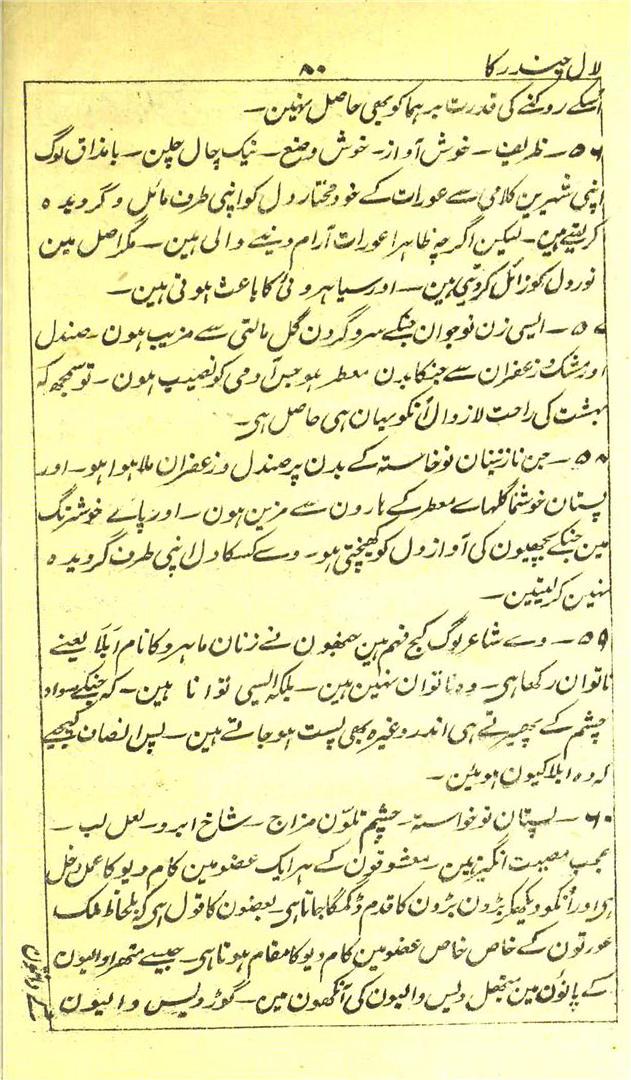 لال چندرکا ۸۰
اُسکے روکنے کی قدرت برہما کو بھی حاصل نہین۔
۵۶۔ ظریف۔ خوش آواز۔ خوش وضع۔ نیک چال چلن۔ بامذاق لوگ
اپنی شیرین کلامی سے عورات کے خودمختار دل کو اپنی طرف مائل و گرویدہ
کرلیتے ہین۔ لیکن اگرچہ ظاہرا عورات آرام دینے والی ہین۔ مگر اصل مین
نور دل کو زائل کردیتی ہین۔ اور سیاہ روئی کا باعث ہوتی ہین۔
۵۷۔ ایسی زن نوجوان جنکے سر و گردن گل مالتی سے مزیب ہون۔ صندل
اور مشک و زعفران سے جنکا بدن معطر ہو جس آدمی کو نصیب ہون۔ تو سمجھ کہ
بہشت کی راحت لازوال اُنکو یہان ہی حاصل ہی۔
۵۸۔ جن نازنینان نوخاستہ کے بدن پر صندل و زعفران ملا ہوا ہو۔ اور
پستان خوشنما گلہاے معطر کے ہارون سے مزین ہون۔ اور پاے خوشرنگ
مین جنکے بچھیون کی آواز دل کو کھینچتی ہو۔ وے کسکا دل اپنی طرف گرویدہ
نہین کرلیتین۔
۵۹۔ وے شاعر لوگ کج فہم ہین جنھون نے زنان ماہرو کا نام اَبَلا یعنے
ناتوان رکھا ہی۔ وہ ناتوان نہین ہین۔ بلکہ ایسی توانا ہین۔ کہ جنکے سواد
چشم کے پھیرتے ہی اندر وغیرہ بھی پست ہوجاتے ہین۔ پس انصاف کیجیے
کہ وہ ابلا کیون ہوئین۔
۶۰۔ پستان نوخواستہ۔ چشم تلوّن مزاج۔ شاخ ابرو۔ لعل لب۔
عجب مصیبت انگیز ہین۔ معشوقون کے ہر ایک عضو مین کام دیو کا عمل دخل
ہی اور اُنکو دیکھکر بڑون بڑون کا قدم ڈگمگا جاتا ہی۔ بعضون کا قول ہی کہ بلحاظ ملک
عورتون کے خاص خاص عضو مین کام دیو کا مقام ہوتا ہی۔ جیسے متھرا والیون
کے پانؤن مین دیس والیون کی آنکھون مین۔ گوڑ دیس والیون
کے دانتون